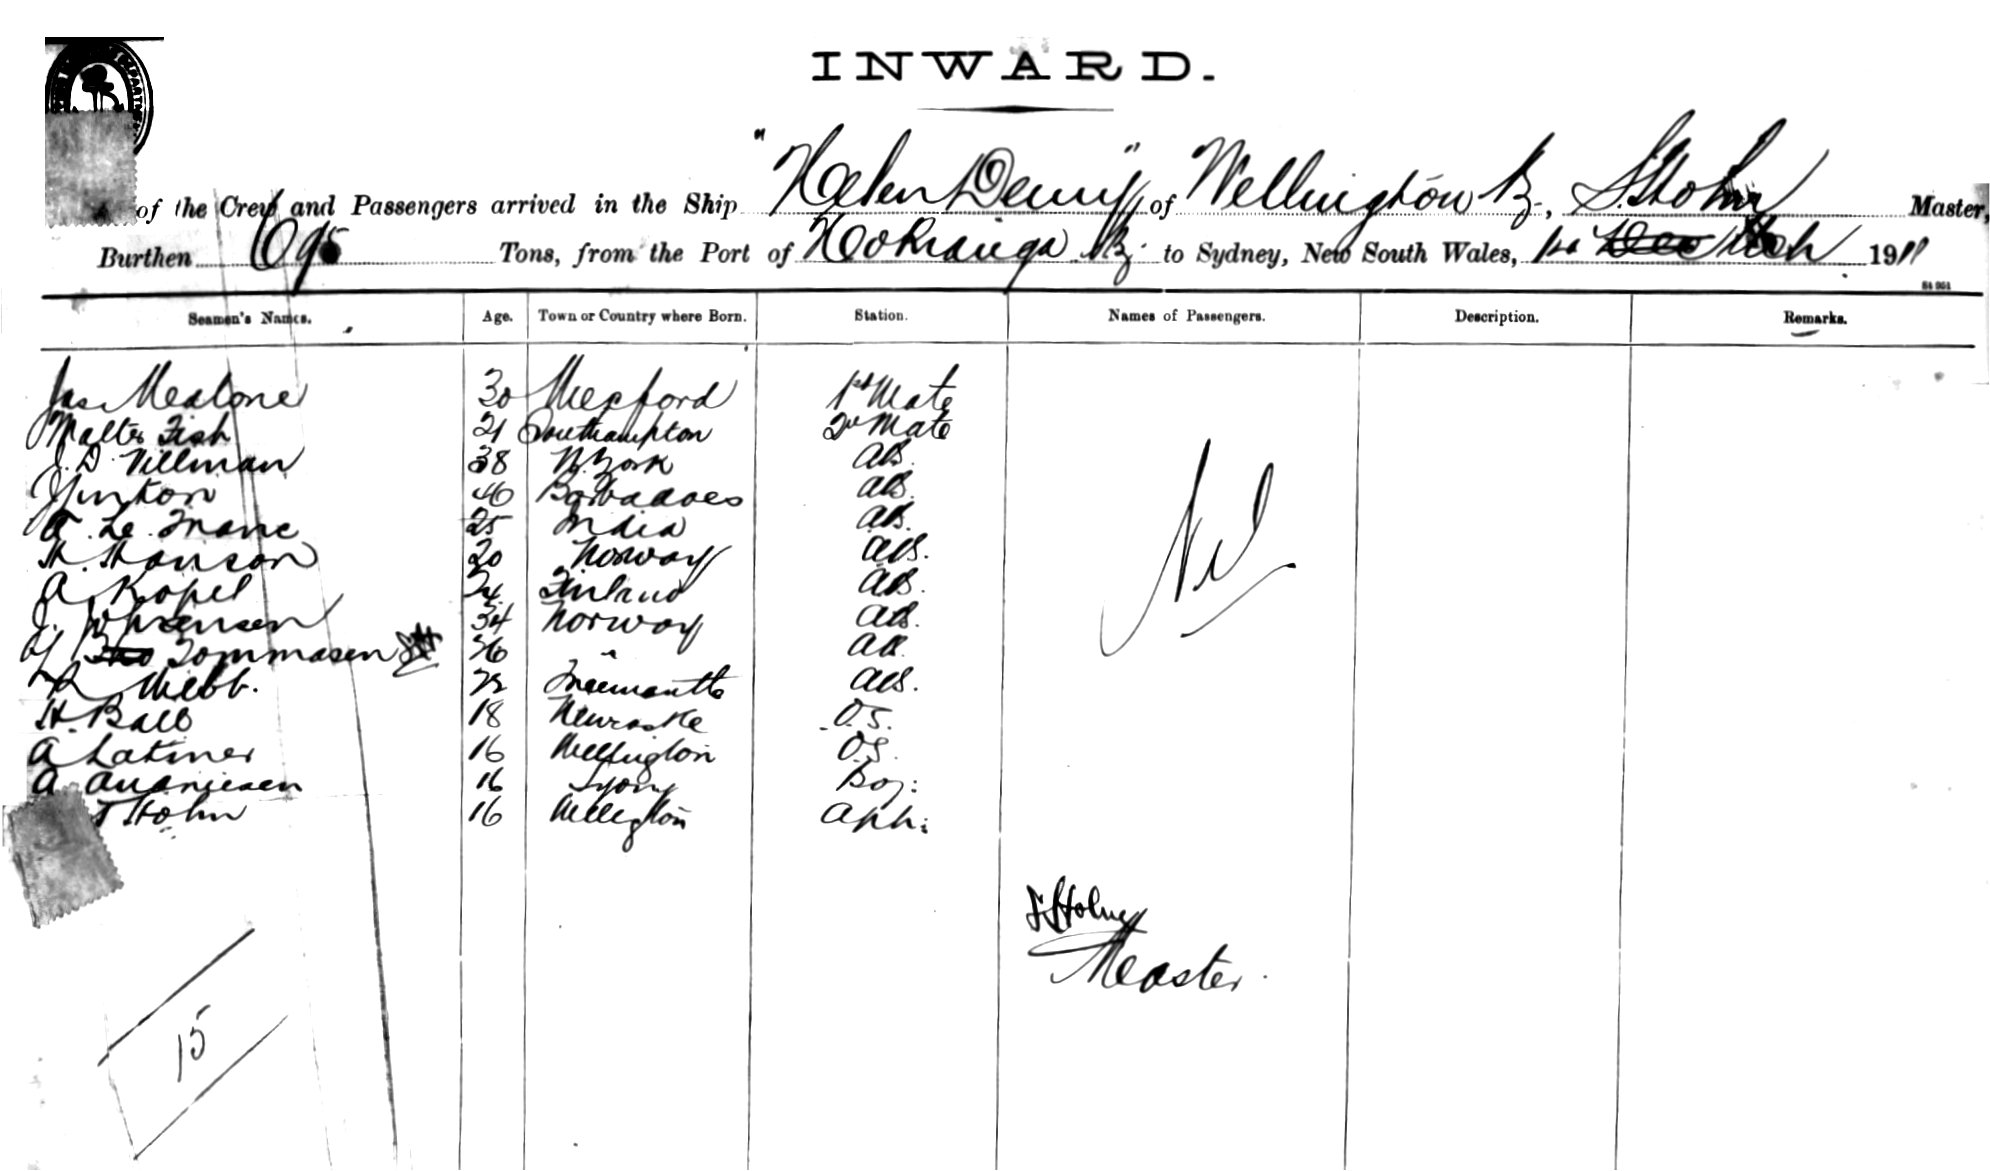 INWARD.
of the Crew and Passengers arrived in the Ship "Helen Denny" of Wellington NZ, S. Holm Master,
Burthen 695 Tons, from the Port of Hokianga NZ to Sydney, New South Wales, 1st Dec March 1911
Seamen's Names. Age. Town or Country where Born. Station. Names of Passengers. Description. Remarks.
Jas Mealone 30 Wexford 1st Mate
Walter Fish 21 Southampton 2nd Mate
J. D. Tillman 38 N. York AB.
40 Barbadoes AB.
A. Le Franc 25 India AB.
H. Hanson 20 Norway AB.
A. Kopel Finland AB.
J. Johnensen 34 Norway AB.
Tommasen 26 " AB.
Webb. Freemantle AB.
H. Ball 18 Newcastle O.S.
A Latimer 16 Wellington O.S.
A 16 Boy:
T Holm 16 Wellington App:
Nil
S Holm
Master.
15